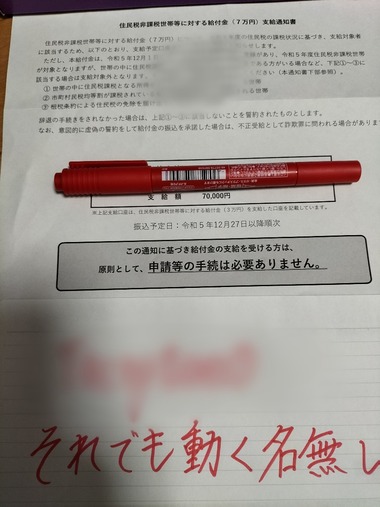 住民税非課税世帯等に対する給付金（7万円）支給通知書
住民税非課税世帯等に対する給付金（7万円）に
度の住民税の課税状況に基づき、支給対象者
に該当するため、以下のとおり、支給予定
せします。
ただし、本給付金は、令和5年12月1
る方がいる場合、あるいは、令和5年度住民税非課税
が対象となりますが、世帯の中に住民税
る方がいる場合など、下記①〜③に
該当する場合は支給対象外となります。
（本通知書下部参照）。
① 世帯の中に住民税課税となる所得
② 市町村民税均等割が課税されてい
る世帯
③ 租税条約による住民税の免除を
辞退の手続きをされなかった場合は、上記①〜③に
しないことを誓約されたものとします。
なお、意図的に虚偽の誓約をして給付金の振込を承諾した場合は、不正受給として詐欺罪に問われる場合があります
支給額 70,000円
※上記支給口座は、住民税非課税世帯等に対する給付金（3万円）を支給した口座を記載しています。
振込予定日：令和5年12月27日以降順次
この通知に基づき給付金の支給を受ける方は、
原則として、申請等の手続は必要ありません。
それでも動く名無し